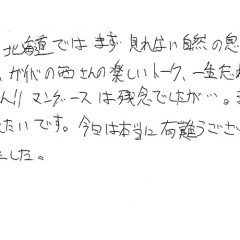 北海道ではまず見れない自然の恵
、ガイドの西さんの楽しいトーク、一生忘れ
ん!! マングースは残念でしたが…。ま
たいです。今日は本当に有難うござ
した。